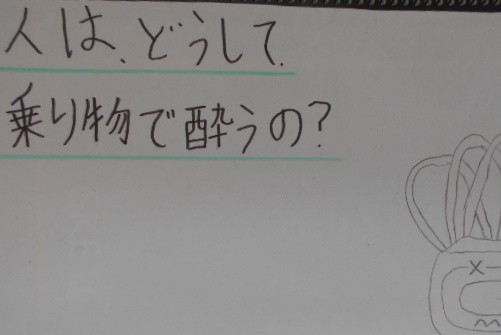 人は、どうして
乗り物で酔うの？